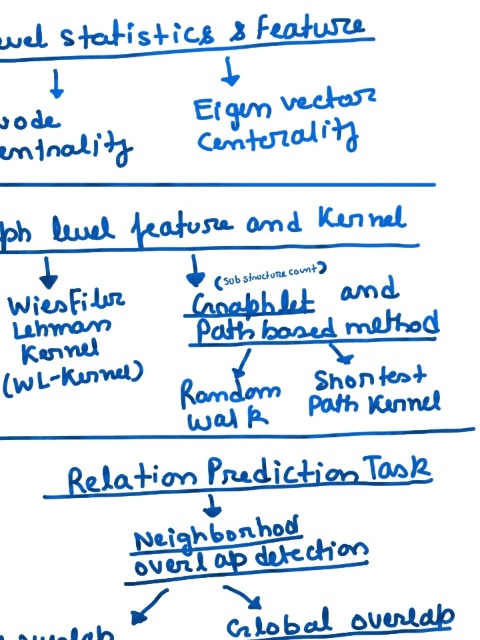 evel statistics & Feature
node
entrality
Eigen vector
Centerality
ph level feature and Kernel
Wiesfiler
Lehman
Kernel
(WL-Kernel)
(Substructure count)
Graphlet and
Path based method
Random
walk
Shortest
Path Kernel
Relation Prediction Task
Neighborhod
overlap detection
overlap
Global overlap